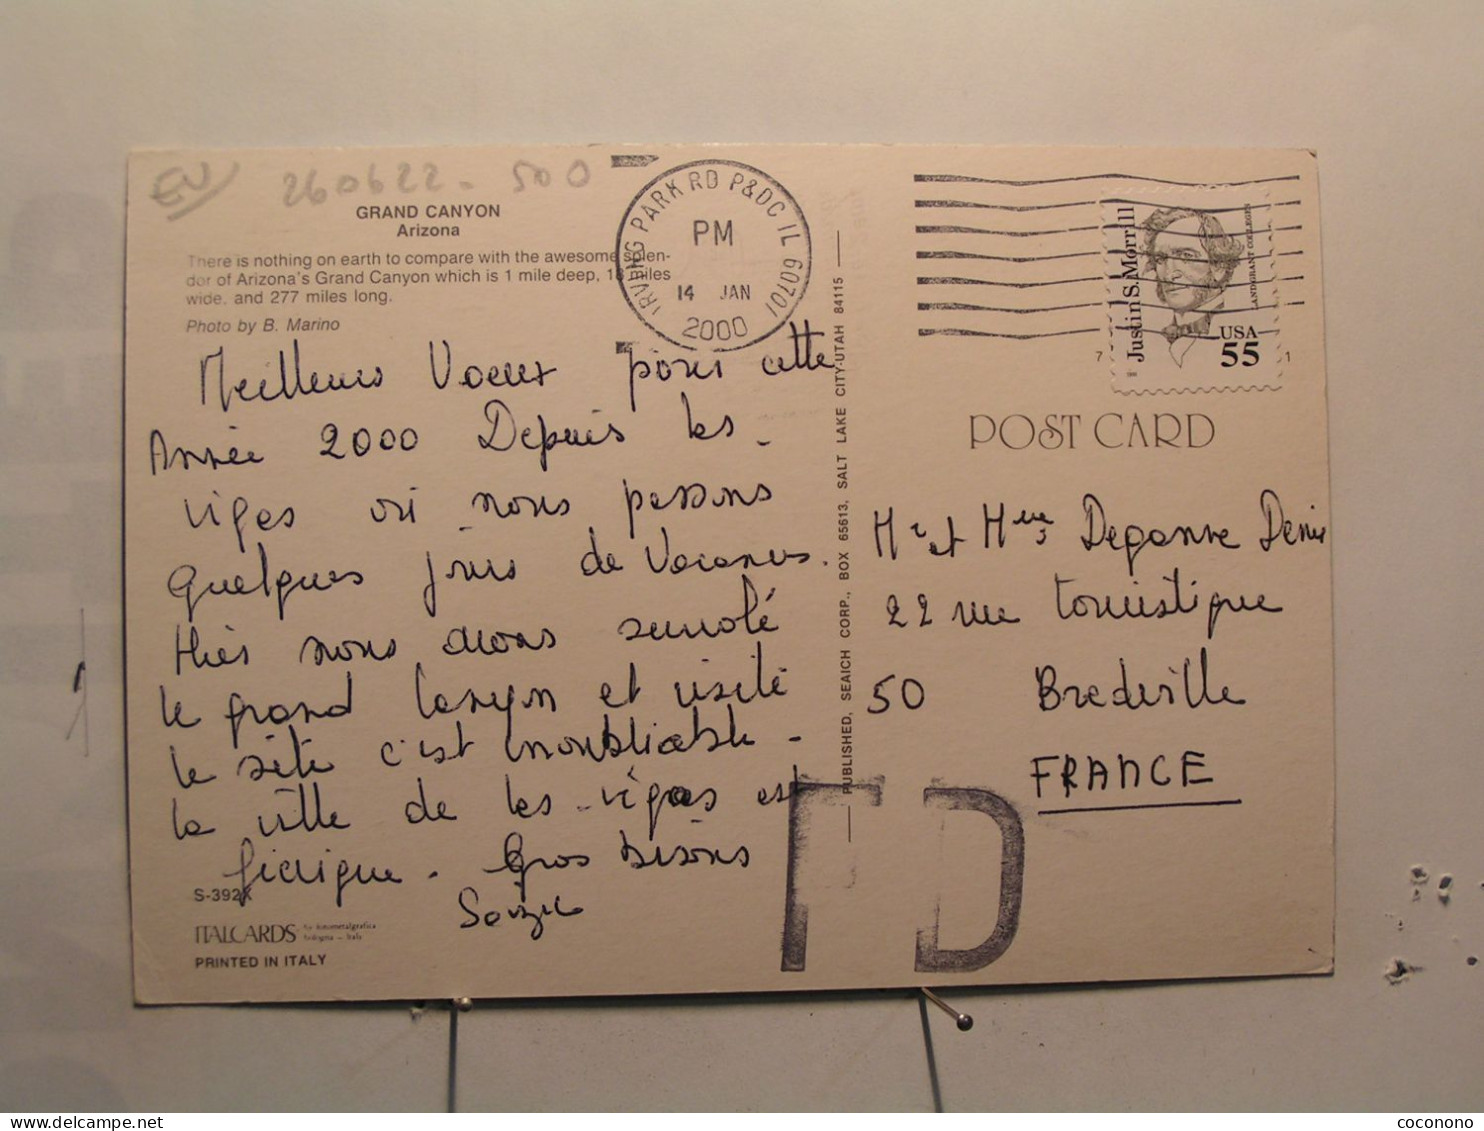 EU 260622. 500
GRAND CANYON
Arizona
There is nothing on earth to compare with the awesome splen-
dor of Arizona's Grand Canyon which is 1 mile deep, 18 miles
wide, and 277 miles long.
Photo by B. Marino
IRVING PARK RD P&DC IL 60701
PM
14 JAN
2000
Justin S. Morrill
LANDGRANT COLLEGES
USA
55
7 1
POST CARD
Meilleurs Voeux pour cette
Année 2000 Depuis les
vigas où nous passons
quelques jours de Vacances.
Hier nous avons survolé
le grand Canyon et visité
le site c'est inoubliable -
la ville de les vigas est
féérique. Gros bisous
PUBLISHED, SEAICH CORP., BOX 65613, SALT LAKE CITY-UTAH 84115
Mr et Mme Deganne Denis
22 rue touristique
50 Bredville
FRANCE
S-392X
ITALCARDS by fotometalgrafica
bologna - Italy
PRINTED IN ITALY
1
coconono